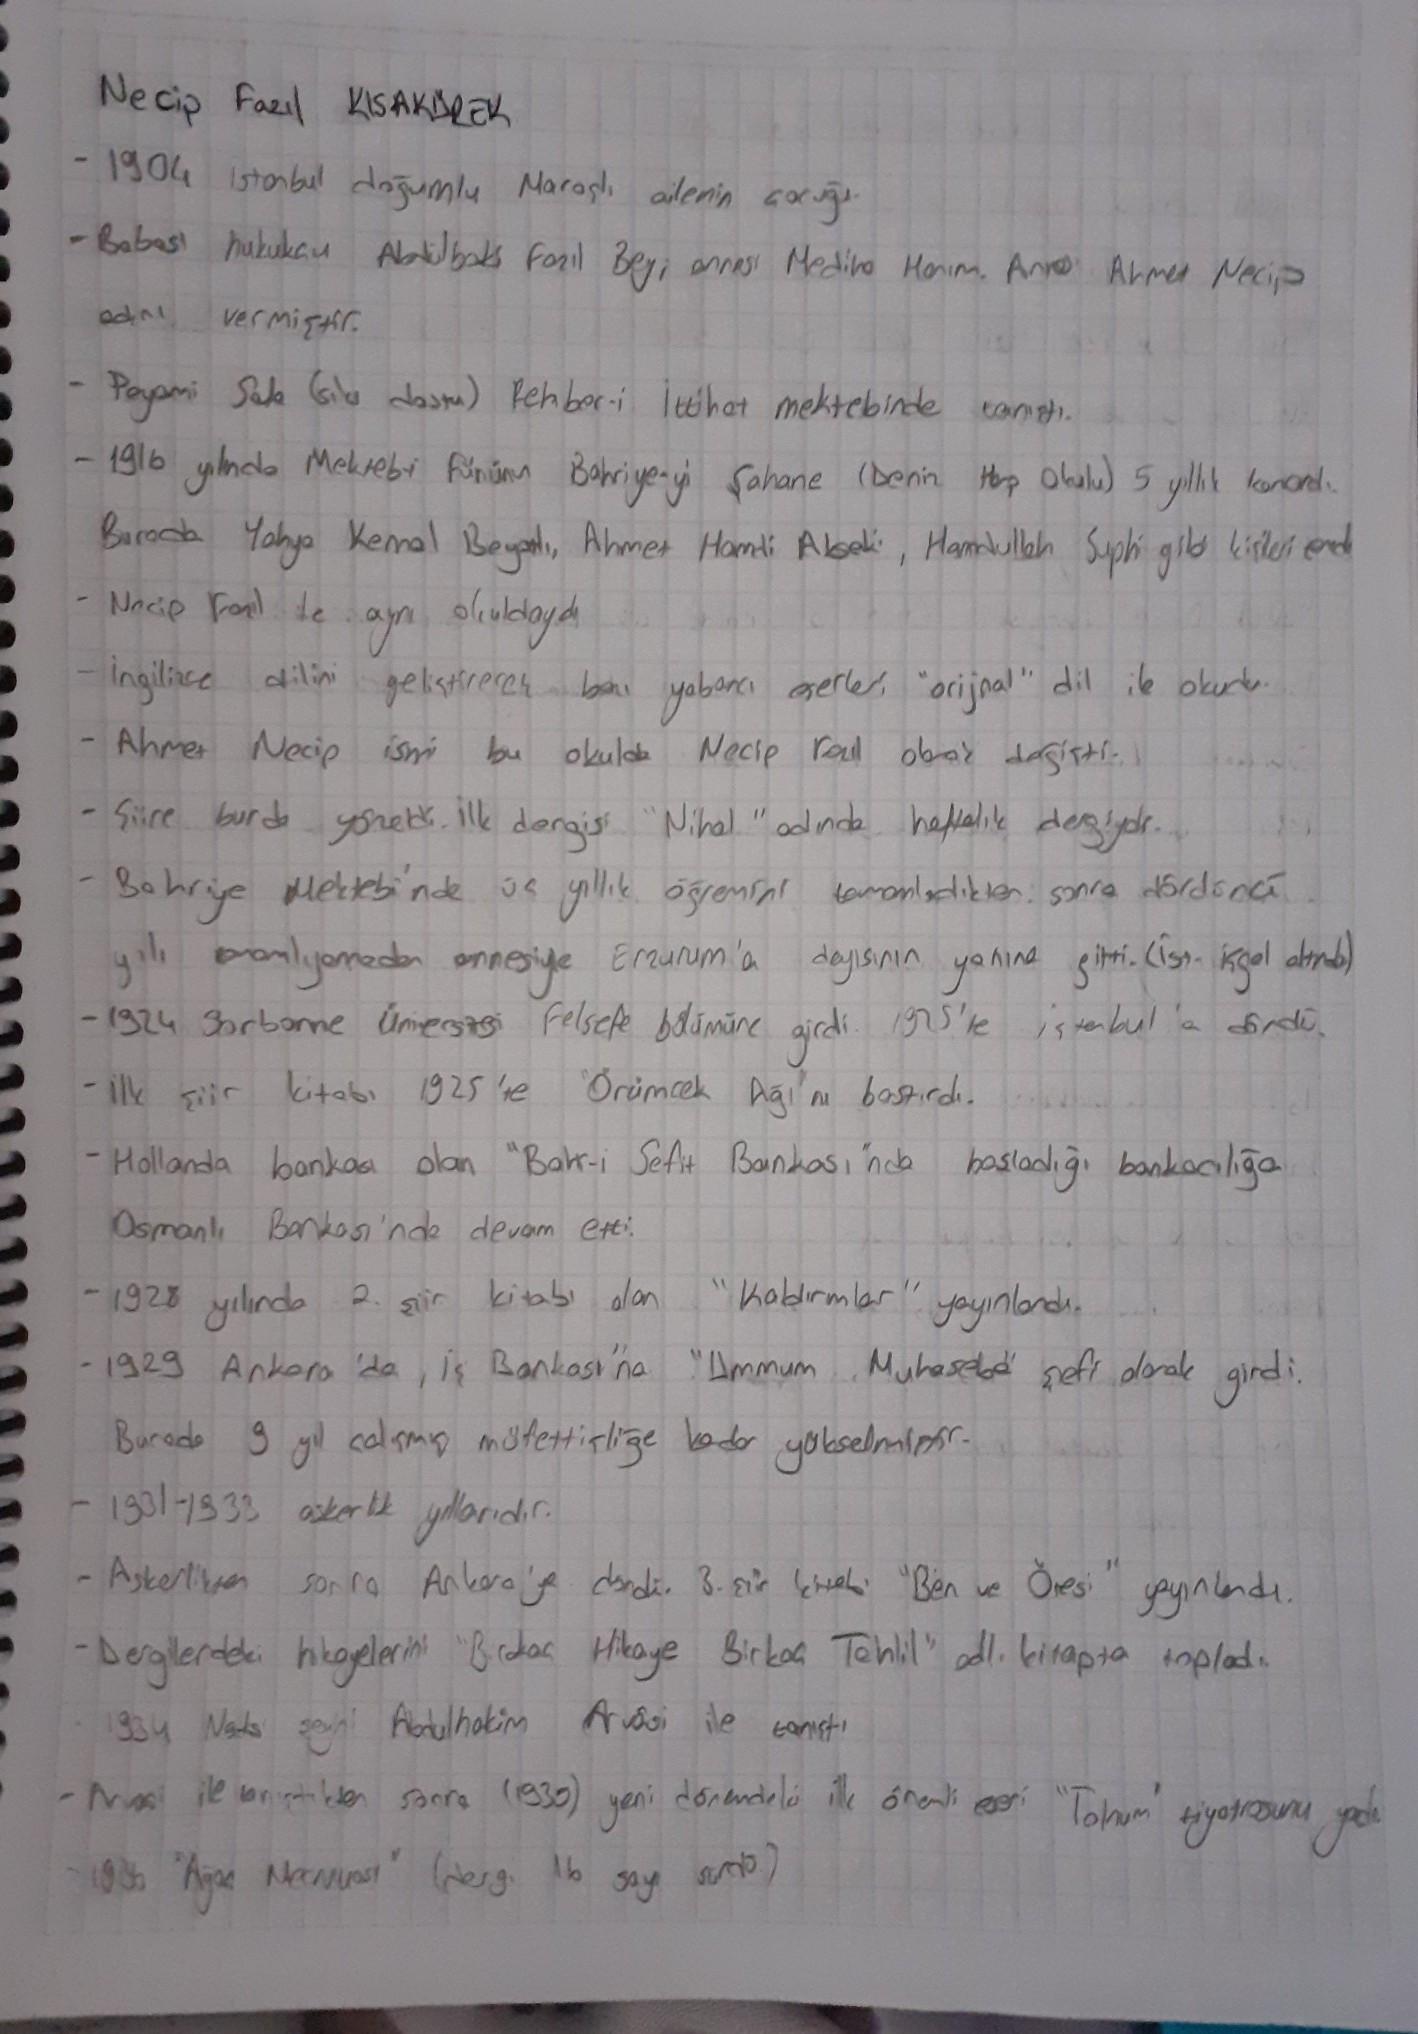 Necip Fazıl KISAKÜREK
- 1904 istanbul doğumlu Maraşlı ailenin çocuğu.
- Babası hukukçu Abdülbaki Fazıl Bey, annesi Mediha Hanım. Ahmet Necip
adını vermiştir.
- Peyami Safa (sıkı dostu) Rehber-i İttihat mektebinde tanıştı.
- 1916 yılında Mekteb-i Fünunu Bahriye-yi Şahane (Deniz Harp Okulu) 5 yıllık kazandı.
Burada Yahya Kemal Beyatlı, Ahmet Hamdi Akseki, Hamdullah Suphi gibi kişileri
- Necip Fazıl ile aynı okuldaydı
- İngilizce dilini geliştirerek bazı yabancı eserleri "orijnal" dil ile okudu.
- Ahmet Necip ismi bu okulda Necip Fazıl olarak değişti.
- Şiire burda yöneldi. İlk dergisi "Nihal" adında haftalık dergiydi.
- Bahriye Mektebi'nde üç yıllık öğremini tamamladıkten sonra dördüncü
yılı tamamlıyamadan annesiyle Erzurum'a dayısının yanına gitti. (İst. işgal altında)
- 1924 Sorbonne Üniversitesi Felsefe bölümüne girdi. 1925'te istanbul'a döndü.
- ilk şiir kitabı 1925'te "Örümcek Ağı"nı bastırdı.
- Hollanda bankası olan "Bahr-i Sefit Bankası"nda başladığı bankacılığa
Osmanlı Bankası'nda devam etti.
- 1928 yılında 2. şiir kitabı olan "Kaldırımlar" yayınlandı.
- 1929 Ankara'da, iş Bankası'na "Ummum Muhasebe" şefi olarak girdi.
Burada 9 yıl çalışmış müfettişliğe kadar yükselmiştir.
- 1931-1933 askerlik yıllarıdır.
- Askerlikten sonra Ankara'ya döndü. 3. şiir kitabı "Ben ve Ötesi" yayınlandı.
- Dergilerdeki hikayelerini "Birkaç Hikaye Birkaç Tahlil" adlı kitapta topladı.
1934 Nakşi şeyhi Abdulhakim Arvâsi ile tanıştı
- Arvasi ile tanıştıkten sonra (1935) yeni dönemdeki ilk önemli eseri "Tohum" tiyatrosunu yazdı.
- 1936 "Ağaç Mecmuası" (dergi 16 sayı sürdü)